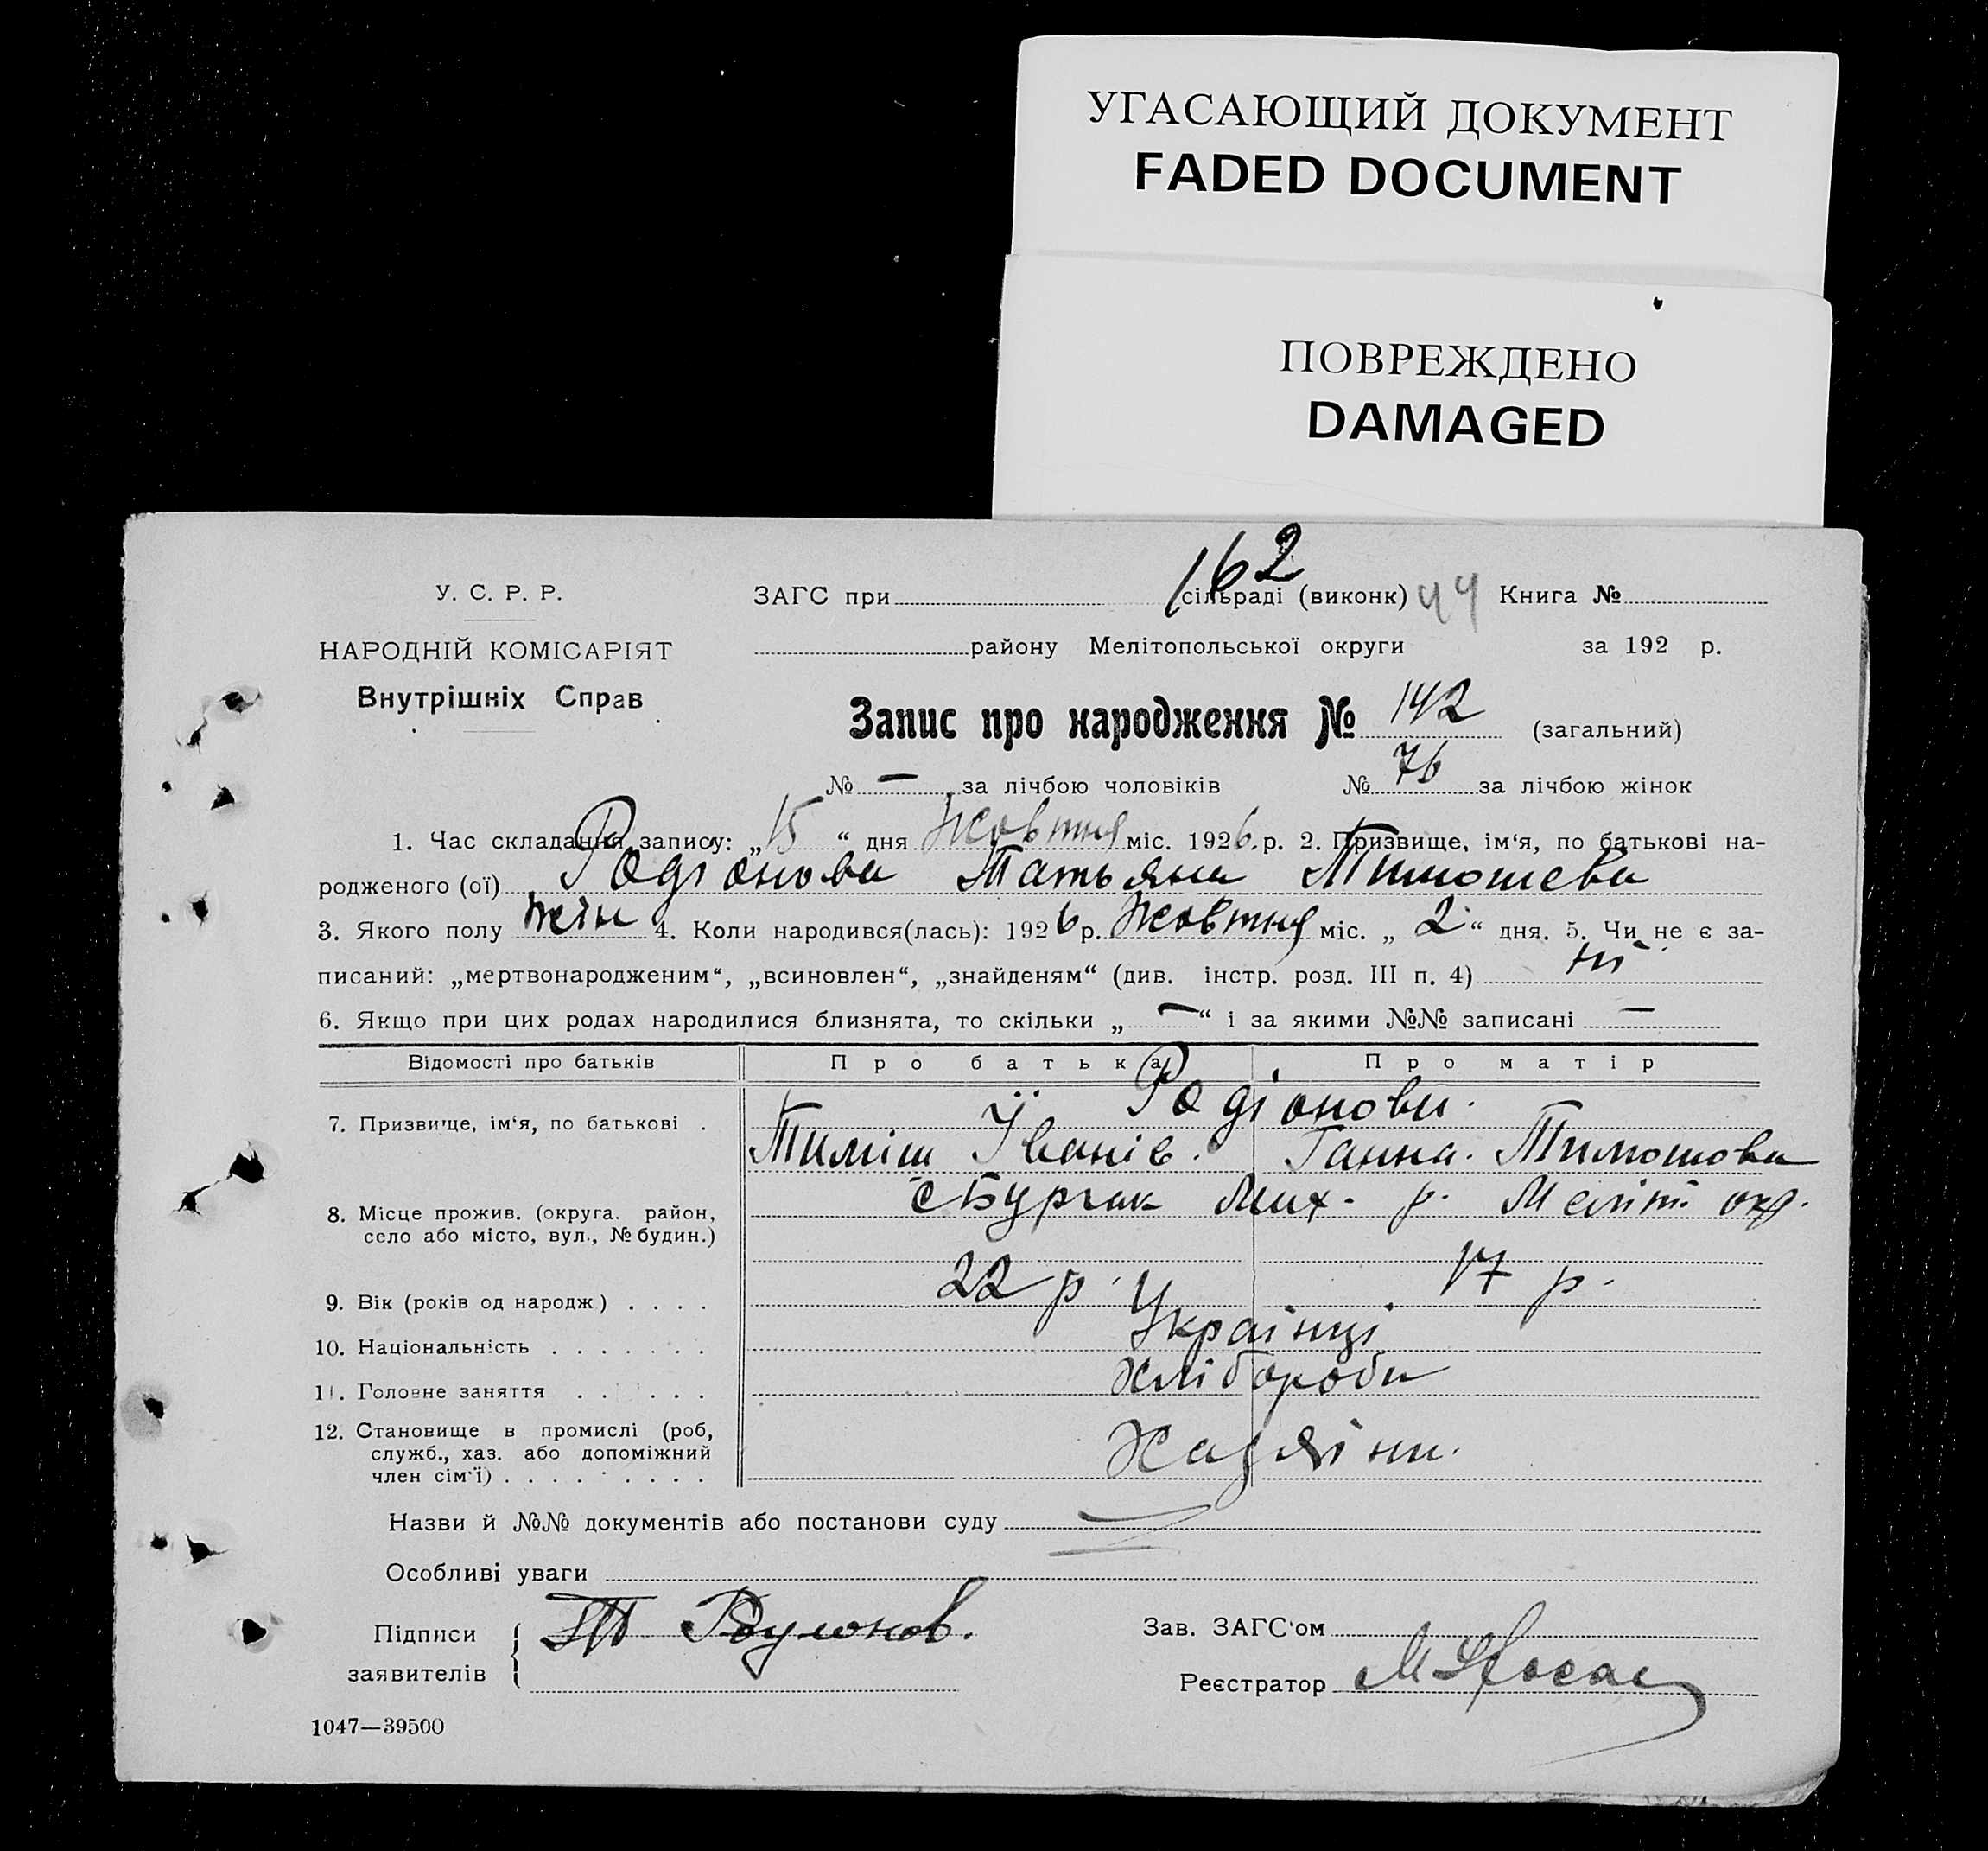 УГАСАЮЩИЙ ДОКУМЕНТ
FADED DOCUMENT
ПОВРЕЖДЕНО
DAMAGED
162
У. С. Р. Р.
ЗАГС при сільраді (виконк) 44 Книга №
НАРОДНІЙ КОМІСАРІЯТ
району Мелітопольської округи за 192 р.
Внутрішніх Справ
Запис про народження № 142 (загальний)
№ — за лічбою чоловіків № 76 за лічбою жінок
1. Час складання запису: „15“ дня Жовтня міс. 1926 р. 2. Призвище, ім‘я, по батькові на-
родженого (ої) Родіонова Татьяна Тимошева
3. Якого полу жін 4. Коли народився(лась): 1926 р. Жовтня міс. „2“ дня. 5. Чи не є за-
писаний: „мертвонародженим“, „всиновлен“, „знайденям“ (див. інстр. розд. III п. 4) ні
6. Якщо при цих родах народилися близнята, то скільки „—“ і за якими №№ записані —
Відомості про батьків Про батька Про матір
Родіонови.
7. Призвище, ім‘я, по батькові .
Тиміш Іванів. Ганна. Тимошова
8. Місце прожив. (округа. район,
село або місто, вул., № будин.)
с Бурчак Мих. р. Меліт. окр.
9. Вік (років од народж) . . . . 22 р. 17 р.
10. Національність . . . . . . . Українці
11. Головне заняття . . . . . . Хлібороби
12. Становище в промислі (роб,
служб., хаз. або допоміжний
член сім‘ї) . . . . . . . . . Хазяїни.
Назви й №№ документів або постанови суду
Особливі уваги
Підписи
заявителів
Т
Зав. ЗАГС‘ом
Реєстратор М
1047—39500